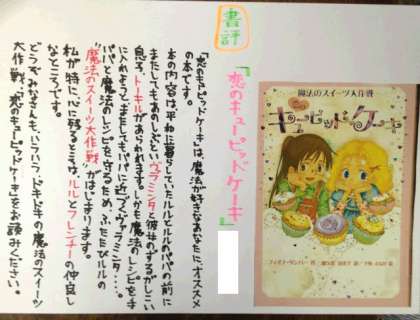 書評
『恋のキューピッドケーキ』
「恋のキューピッドケーキ」は、魔法が好きなあなたに、オススメ
の本です。
本の内容は、平和に暮らしていたルルとルルのパパの前に
またしてもあのしぶといヴァラミンタと彼女のずるがしこい
息子、トーキルがあらわれます。しかも魔法のレシピを手
に入れようと、またしてもパパに近づくヴァラミンタ…。
パパと魔法のレシピを守るため、ふたたびルルの
"魔法のスイーツ大作戦"がはじまります。
私が特に、心に残るところは、ルルとフレンチーの仲良し
なところです。
どうぞみなさんも、ハラハラ、ドキドキの魔法のスイーツ
大作戦、「恋のキューピッドケーキ」をお読みください。
魔法のスイーツ大作戦
恋の
キューピッドケーキ